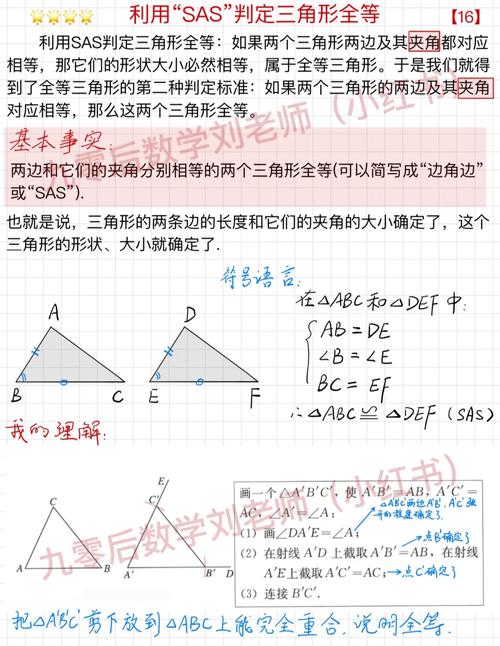 利用“SAS”判定三角形全等 【16】
利用SAS判定三角形全等：如果两个三角形两边及其夹角都对应
相等，那它们的形状大小必然相等，属于全等三角形。于是我们就得
到了全等三角形的第二种判定标准：如果两个三角形的两边及其夹角
对应相等，那么这两个三角形全等。
基本事实：
两边和它们的夹角分别相等的两个三角形全等(可以简写成“边角边”
或“SAS”).
也就是说，三角形的两条边的长度和它们的夹角的大小确定了，这个
三角形的形状、大小就确定了.
九零后数学刘老师（小红书）
符号语言：
在△ABC和△DEF中：
AB = DE
∠B = ∠E
BC = EF
∴△ABC≌△DEF (SAS)
A
B
C
D
E
F
我的理解：
C
A
B
E
C'
A'
B'
D
画一个△A'B'C'，使A'B'=AB，A'C'=
AC，∠A'=∠A：
△A'B'C'两边A'B'、A'C'张
开的程度确定了
(1) 画∠DA'E=∠A；
点B'确定了
(2) 在射线A'D上截取A'B'=AB，在射线
A'E上截取A'C'=AC；→点C'确定了
(3) 连接B'C'.
九零后数学刘老师（小红书）
把△A'B'C'剪下放到△ABC上能完全重合，说明全等.